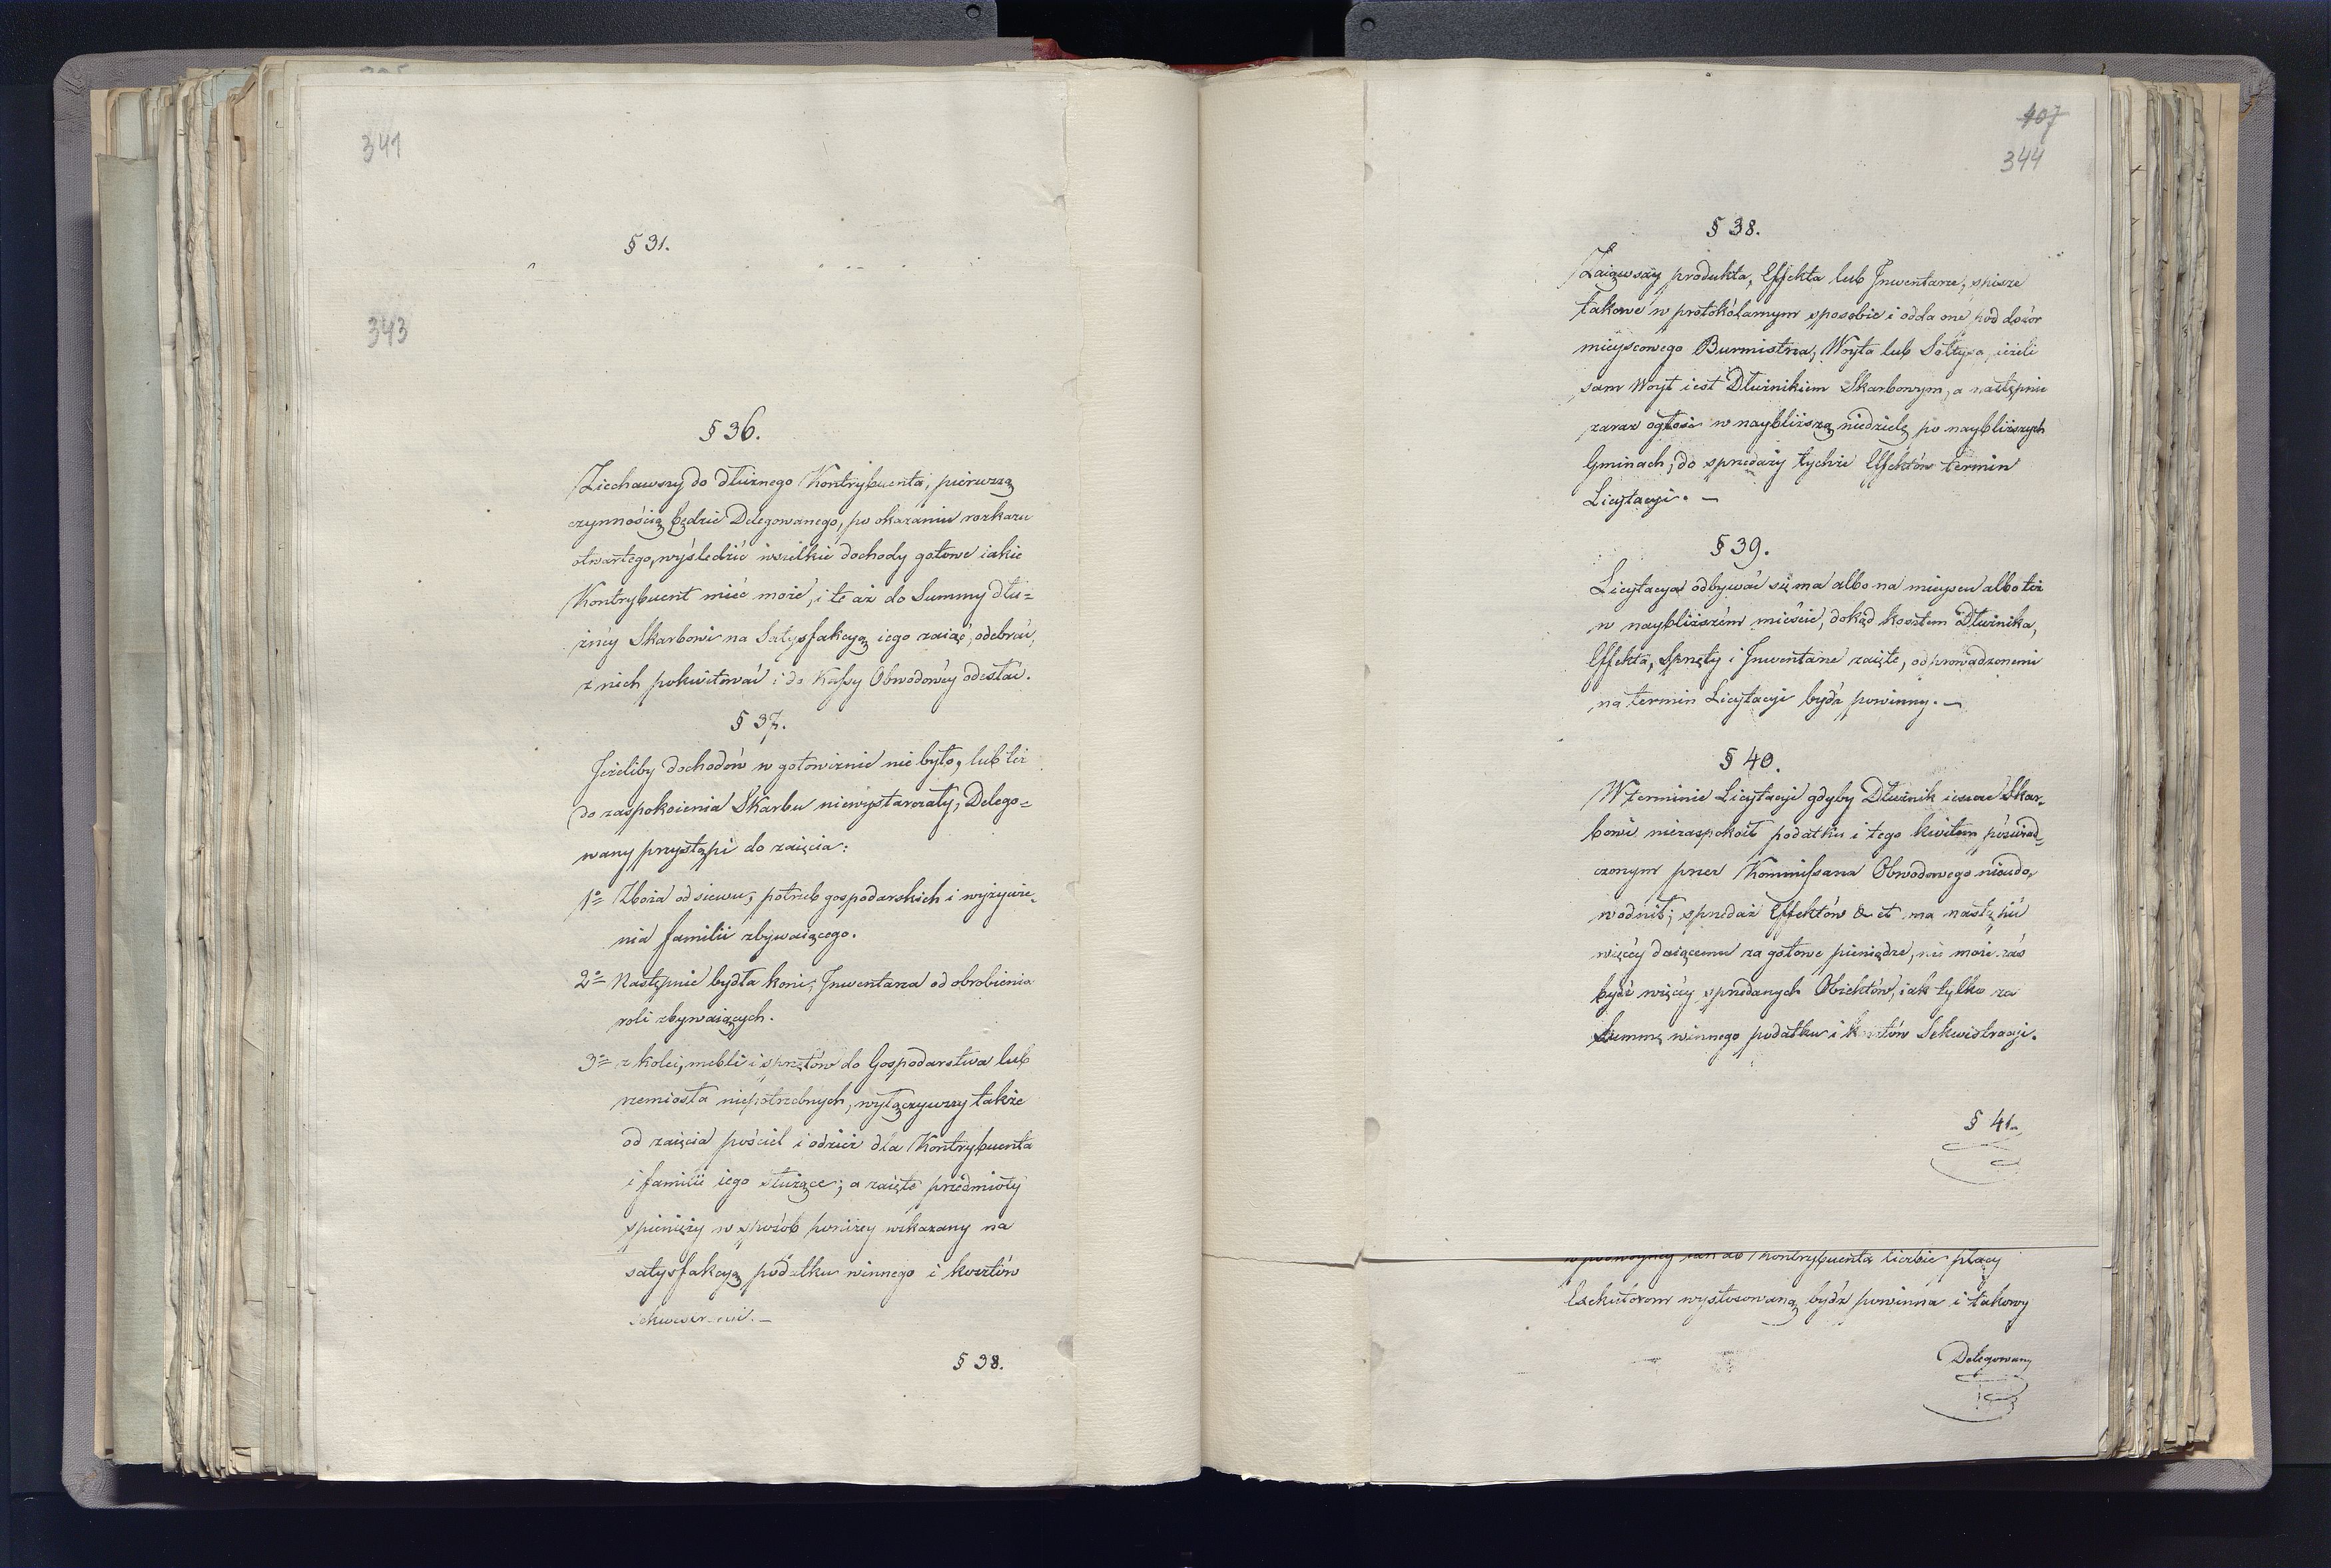 341
§ 31.
343
§ 36.
Ziechawszy do dłużnego Kontrybuenta, pierwszą
czynnością będzie Delegowanego, po okazaniu rozkazu
otwartego, wyśledzić wszelkie dochody gotowe iakie
Kontrybuent mieć może, i te aż do Summy dłu=
żnéy Skarbowi na Satysfakcyą iego zaiąć, odebrać,
z nich pokwitować i do Kassy Obwodowéy odesłać.
§ 37.
Jeżeliby dochodów w gotowiznie nie było, lub też
do zaspokoienia Skarbu niewystarczały, Delego=
wany przystąpi do zaięcia:
1° Zboża od siewu, potrzeb gospodarskich i wyżywie=
nia familii zbywaiącego.
2° Następnie bydła koni, Inwentarza od obrobienia
roli zbywaiących.
3° z kolei, mebli i sprzętów do Gospodarstwa lub
rzemiosła niepotrzebnych, wyłączywszy także
od zaięcia pościel i odzież dla Kontrybuenta
i familii iego służące; a zaięte przedmioty
spienięży w sposób poniżey wskazany na
satysfakcyą podatku winnego i kosztów
§ 38.
407
344
§ 38.
Zaiąwszy produkta, Effekta lub Inwentarze, spisze
takowe w protokólarnym sposobie i odda one pod dozór
mieyscowego Burmistrza, Woyta lub Sołtysa, ieżeli
sam Woyt iest Dłużnikiem Skarbowym, a następnie
zaraz ogłosi w naybliższą niedzielę po naybliższych
Gminach, do sprzedaży tychże Effektów termin
Licytacyi. —
§ 39.
Licytacya odbywać się ma albo na mieyscu albo też
w naybliższém mieście, dokąd kosztem Dłużnika,
Effekta, Sprzęty i Inwentarze zaięte, odprowadzonemi
na termin Licytacyi bydź powinny. —
§ 40.
W terminie Licytacyi gdyby Dłużnik ieszcze Skar=
bowi niezaspokoił podatku i tego kwitem poświad=
czonym przez Kommissarza Obwodowego nieudo=
wodnił; sprzedaż Effektów & ct ma nastąpić
więcéy daiącemu za gotowe pieniądze, nie może zaś
bydź więcéy sprzedanych Obiektów, iak tylko za
Summę winnego podatku i kosztów Sekwestracyi.
§ 41.
Kontrybuenta liczbie płacy
Exekutorom wystosowaną bydź powinna i takowy
Delegowany